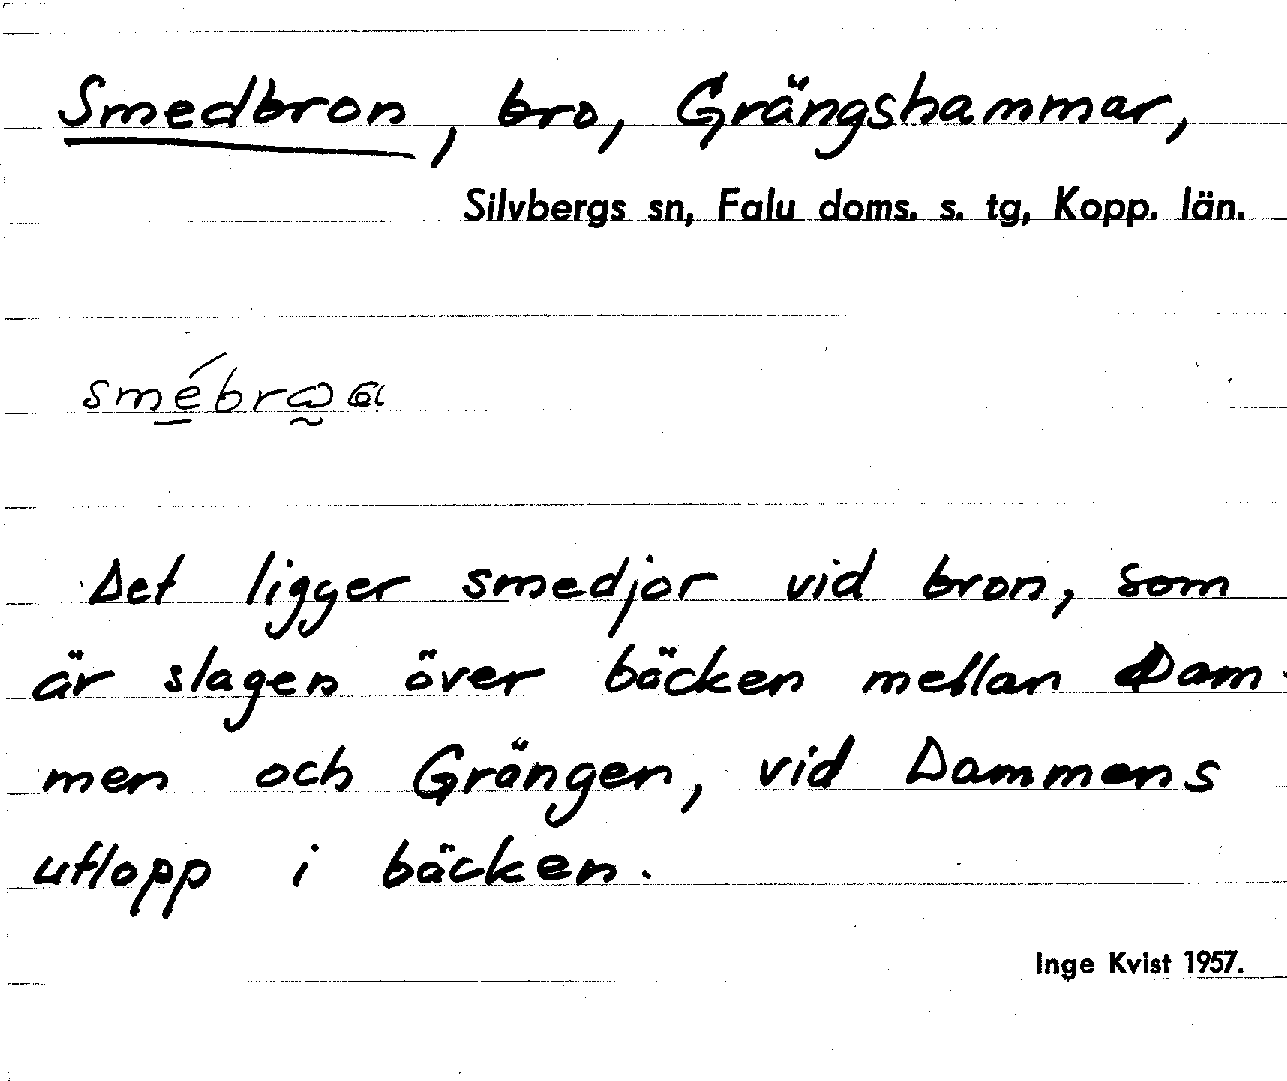 Smedbron, bro, Grängshammar,
Silvbergs sn, Falu doms. s. tg, Kopp. län.
Det ligger smedjor vid bron, som
är slagen över bäcken mellan Dam-
men och Grängen, vid Dammens
utlopp i bäcken.
Inge Kvist 1957.